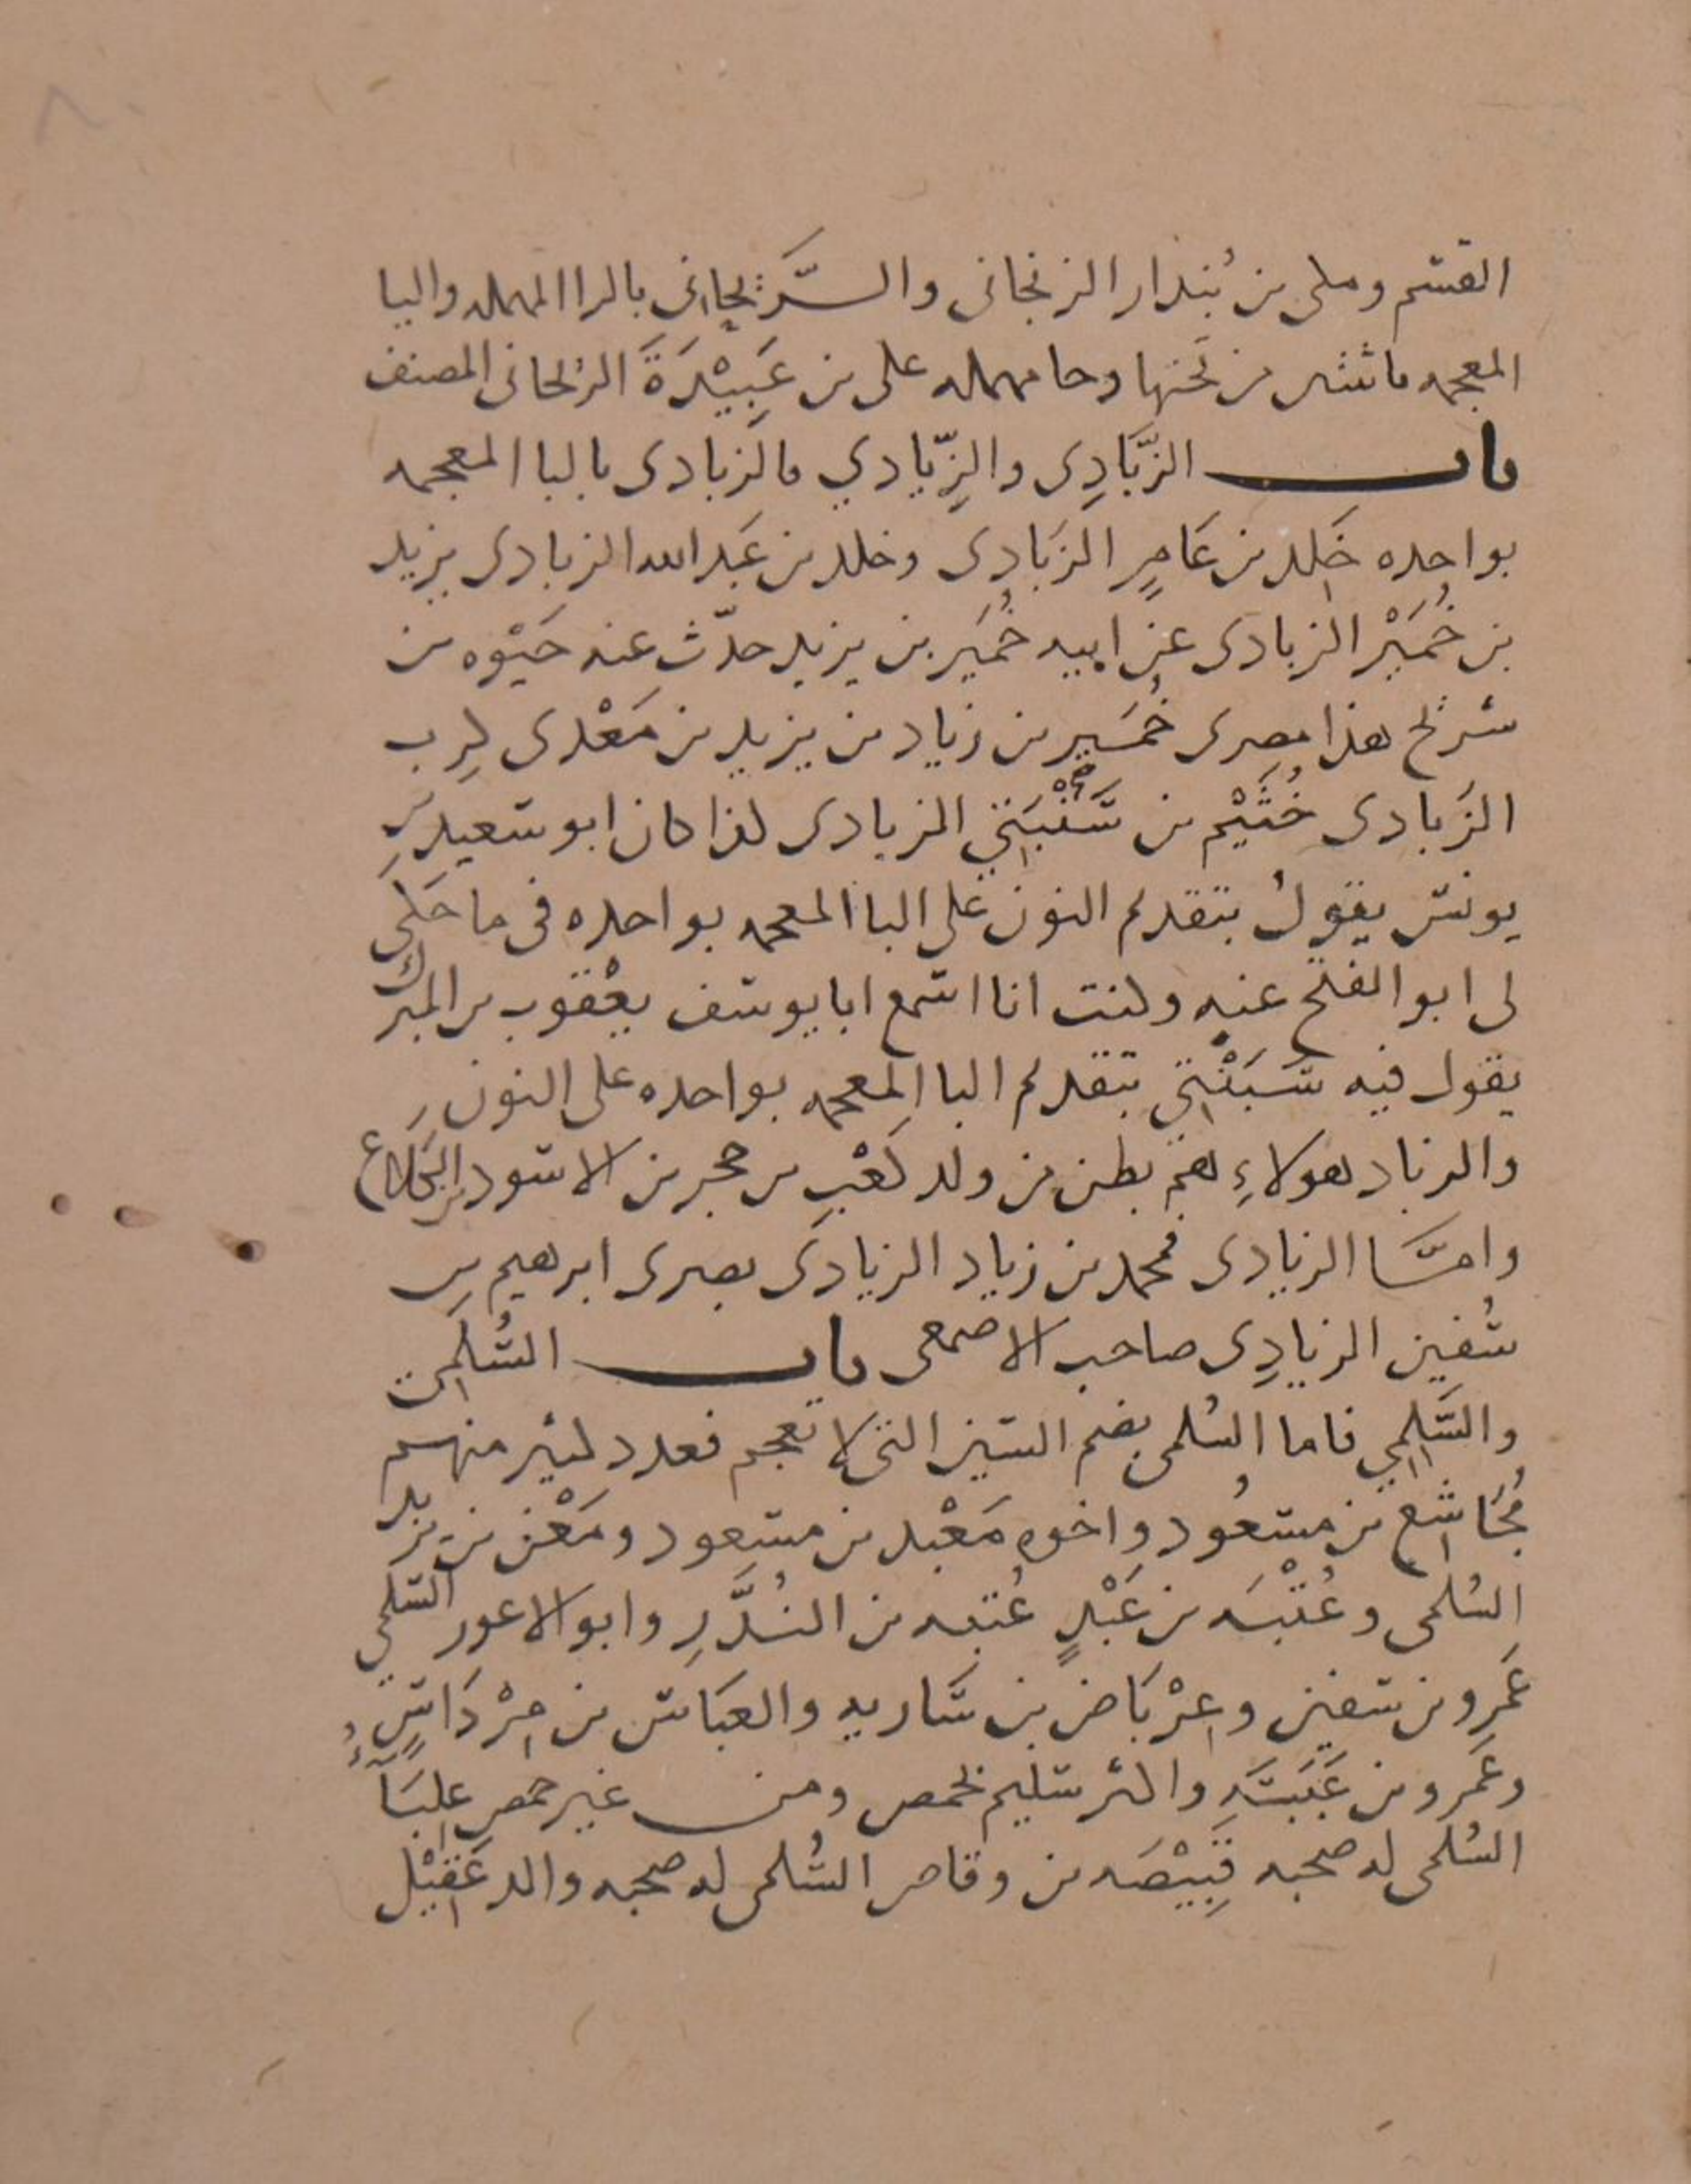 القسم ومكي بن بُندار الزنجاني والرَّيحاني بالرا المهمله واليا
المعجمه باثنتين من تحتها وحا مهمله على بن عَبِيْدَةَ الريحاني المصنف
باب الزَّبَادِي والزِّيَادي فالزبادى بالبا المعجمه
بواحده خَلد بن عَامِرٍ الزَبَادِى وخلد بن عَبد الله الزبادى يزيد
بن خُمَيْر الزبادى عن ابيه خُمَير بن يزيد حدّث عنه حَيْوه بن
شريح هذا مصرى خُمَير بن زياد بن يزيد بن مَعْدى كرِب
الزَبادى خُثَيْم بن سَنْبَتي الزبادى كذا كان ابو سَعيد بن
يونس يقولُ بتقديم النون على البا المعجمه بواحده فى ما حَكى
لى ابو الفتح عنه وكنت انا اسمع ابا يوسف يعْقوب بن المبرك
يقول فيه سَبَنْتي بتقديم البا المعجمه بواحده على النون
والزباد هولاءِ هم بطن من ولد كَعْبِ بن حجر بن الاسود بن الكَلاع
وامَّا الزيادى فمحمد بن زياد الزيادى بصرى ابرهيم بن
سُفين الزيادِى صاحب الاصمعى باب السُّلَمِى
والسَّلِمِي فاما السُلمى بضم السين التى لا تعجم فعدد كثير منهم
مُجَاشِع بن مسعُود واخوه مَعْبد بن مسعود ومَعْن بن يزيد
السُلمى وعُتْبَه بن عَبْدٍ عُتبه بن النُدَّرِ وابو الاعور السُلمي
عَمرو بن سفين وعِرْبَاض بن سَاريه والعبَاس بن مِرْدَاسٍ
وعَمرو بن عَبَسَه واكثر سُليم بحمص ومن غير حمص عِلبَآءُ
السُلمى له صحبه قَبِيْصَه بن وقاص السُلمى له صحبه والد عَقِيْل